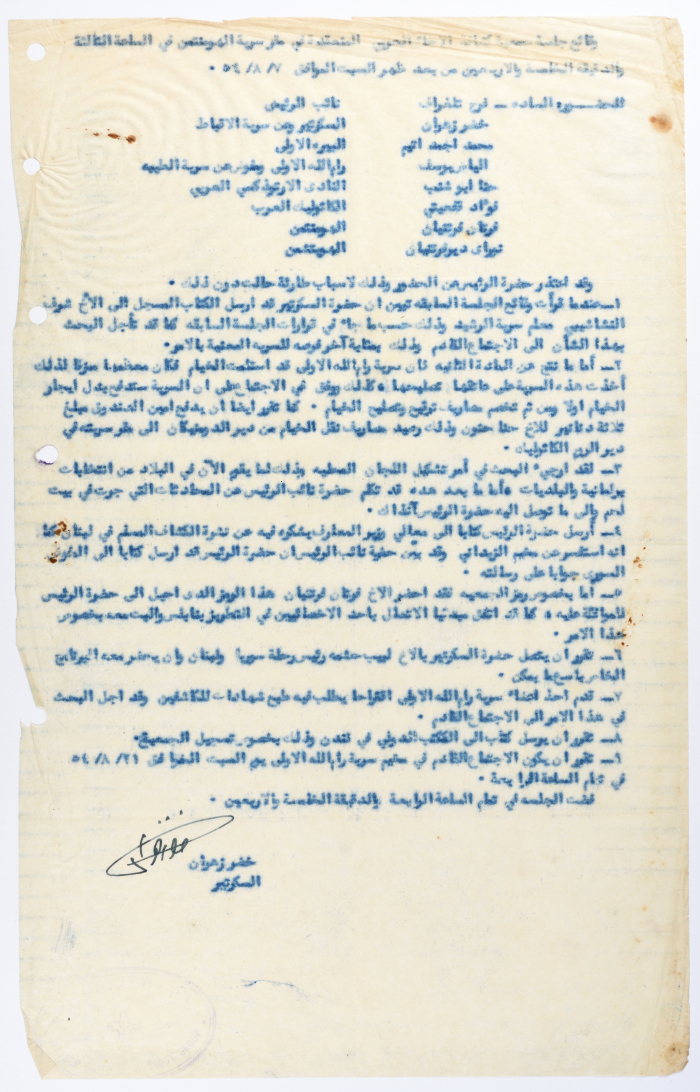 وقائع جلسة جمعية كشافة الاتحاد العربي المنعقدة في مقر سرية الهومنتمن في الساعة الثالثة
والدقيقة الخامسة والاربعين من بعد ظهر السبت الموافق ٧/ ٨/ ٥٤ .
الحضور السادة ـ فرح تلغراف نائب الرئيس
خضر زهران السكرتير وعن سرية الاقباط
محمد احمد البيره الاولى
الياس يوسف رام الله الاولى ومفوض عن سرية الطيبه
حنا ابو شنب النادى الارثوذكسي العربي
فؤاد الكاثوليك العرب
فرتان فرتنيان الهومنتمن
الهومنتمن
وقد اعتذر حضرة الرئيس عن الحضور وذلك لاسباب طارئة حالت دون ذلك .
١ـ عندما قرأت وقائع الجلسة السابقه تبين ان حضرة السكرتير قد ارسل الكتاب المسجل الى الاخ شرف
النشاشيبي معلم سرية الرشيد وذلك حسب ما جاء في قرارات الجلسة السابقه كما قد تأجل البحث
بهذا الشأن الى الاجتماع القادم وذلك بمثابة آخر فرصه للسريه المعنية بالامر.
٢ـ أما ما نتج عن المادة الثانيه فان سرية رام الله الاولى قد استلمت الخيام فكان معظمها ممزقا لذلك
أخذت هذه السرية على عاتقها تصليحها ، كذلك ووفق في الاجتماع على ان السرية ستدفع بدل ايجار
الخيام اولا ومن ثم تخصم مصاريف ترقيع وتصليح الخيام . كما تقرر ايضا ان يدفع امين الصندوق مبلغ
ثلاثة دنانير للاخ حنا وذلك رصيد مصاريف نقل الخيام من دير الى مقر سريته في
دير الروم الكاثوليك .
٣ـ لقد ارجيء البحث في أمر تشكيل اللجان المحليه وذلك لما يقوم الآن في البلاد من انتخابات
برلمانية والبلديات ، أما ما بعد هذه قد تكلم حضرة نائب الرئيس عن المحادثات التي جرت في بيت
لحم والى ما توصل اليه حضرة الرئيس آنذاك .
٤ـ أرسل حضرة الرئيس كتابا الى معالي وزير المعارف يشكره فيه عن نشرة الكشاف المسلم في لبنان كما
انه استفسر عن مخيم الزبداني وقد بين حضرة نائب الرئيس ان حضرة الرئيس قد ارسل كتابا الى
السورى جوابا على رسالته .
٥ـ أما بخصوص رمز الجمعيه فقد احضر الاخ فرتان فرتنيان هذا الرمز الذى احيل الى حضرة الرئيس
للموافقة عليه ، كما قد اتفق مبدئيا الاتصال باحد الاخصائيين في التطريز بنابلس والبت معه بخصوص
هذا الامر .
٦ـ تقرر ان يتصل حضرة السكرتير بالاخ لبيب حشمه رئيس رحلة سوريا ولبنان وان يحضر معه البرنامج
الخاص باسرع ما يمكن .
٧ـ قدم احد اعضاء سرية رام الله الاولى اقتراحا يطلب فيه طبع شهادات للكشافين وقد اجل البحث
في هذا الامر الى الاجتماع القادم .
٨ـ تقرر ان يرسل كتاب الى المكتب الدولي في لندن وذلك بخصوص تسجيل الجمعية.
٩ـ تقرر ان يكون الاجتماع القادم في مخيم سرية رام الله الاولى يوم السبت الموافق ٢١/ ٨/ ٥٤
في تمام الساعة الرابعة .
فضت الجلسه في تمام الساعة الرابعة والدقيقة الخامسة والاربعين .
خضر زهران
السكرتير